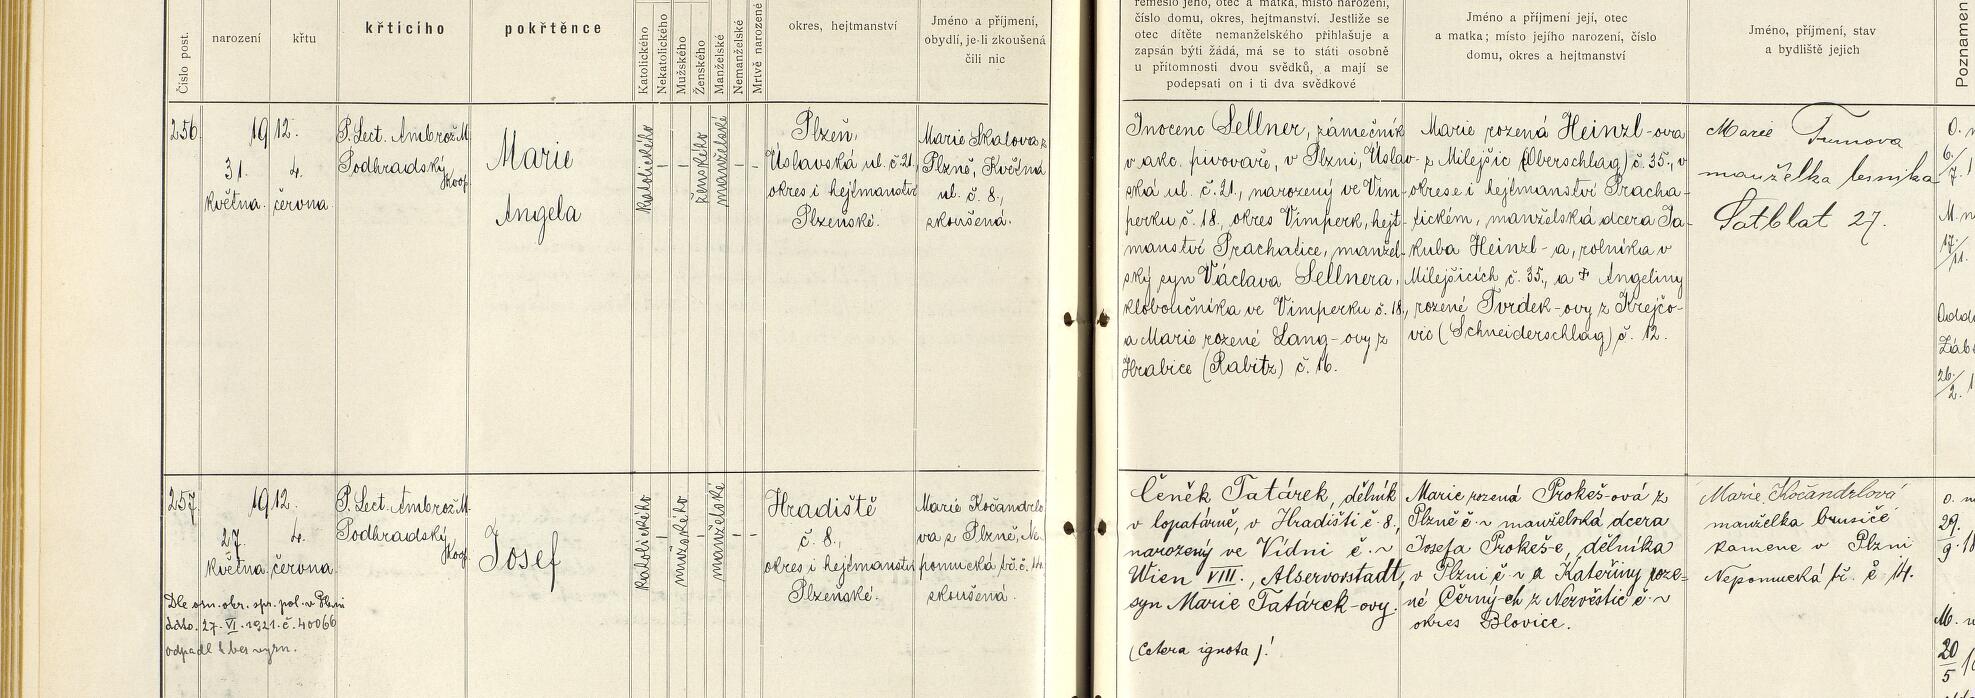 Číslo post.
narození
křtu
křtícího
pokřtěnce
Katolického
Nekatolického
Mužského
Ženského
Manželské
Nemanželské
Mrtvě narozené
okres, hejtmanství
Jméno a příjmení,
obydlí, je-li zkoušená
čili nic
řemeslo jeho, otec a matka, místo narození,
číslo domu, okres, hejtmanství. Jestliže se
otec dítěte nemanželského přihlašuje a
zapsán býti žádá, má se to státi osobně
u přítomnosti dvou svědků, a mají se
podepsati on i ti dva svědkové
Jméno a příjmení její, otec
a matka; místo jejího narození, číslo
domu, okres a hejtmanství
Jméno, příjmení, stav
a bydliště jejich
Poznamen
256.
1912.
31. 4.
května. června.
P. Lect. Ambrož M.
Podhradský
Koop.
Marie
Angela
katolického
ženského
manželské
Plzeň,
Úslavská ul. č. 21,
okres i hejtmanství
Plzeňské.
Marie Skalova z
Plzně, Květná
ul. č. 8.,
zkoušená.
Inocenc Sellner, zámečník
v akc. pivovaře, v Plzni, Úslav-
ská ul. č. 21., narozený ve Vim-
perku č. 18., okres Vimperk, hejt-
manství Prachatice, manžel-
ský syn Václava Sellnera,
kloboučníka ve Vimperku č. 18.,
a Marie rozené Lang-ovy z
Hrabice (Rabitz) č. 16.
Marie rozená Heinzl-ova
z Milejšic (Oberschlag) č. 35., v
okrese i hejtmanství Pracha-
tickém, manželská dcera Ja-
kuba Heinzl-a, rolníka v
Milejšicích č. 35., a † Angeliny
rozené Tvrdek-ovy z Krejčo-
vic (Schneiderschlag) č. 12.
Marie
manželka
Satblat 27.
257.
1912.
27. 4.
května. června.
P. Lect. Ambrož M.
Podhradský
Koop.
Josef
katolického
mužského
manželské
Hradiště
č. 8.,
okres i hejtmanství
Plzeňské.
Marie Kočandrlo-
va z Plzně, Ne-
pomucká tř. č. 14.
zkoušená.
Čeněk Tatárek, dělník
v lopatárně, v Hradišti č. 8.,
narozený ve Vídni č. ~
Wien VIII., Alservorstadt,
syn Marie Tatárek-ovy.
(Cetera ignota)!
Marie rozená Prokeš-ová z
Plzně č. ~ manželská dcera
Josefa Prokeš-e, dělníka
v Plzni č. ~ a Kateřiny roze-
né Černý-ch z Nezvěstic č. ~
okres Blovice.
Marie Kočandrlová
manželka brusiče
kamene v Plzni
Nepomucká tř. č. 14.
Dle ozn. okr. spr. pol. v Plzni
dáto. 27. VI. 1921. č. 40066
odpadl bez vyzn.
6./7.
17./11.
26./2.
29./9.
20/5